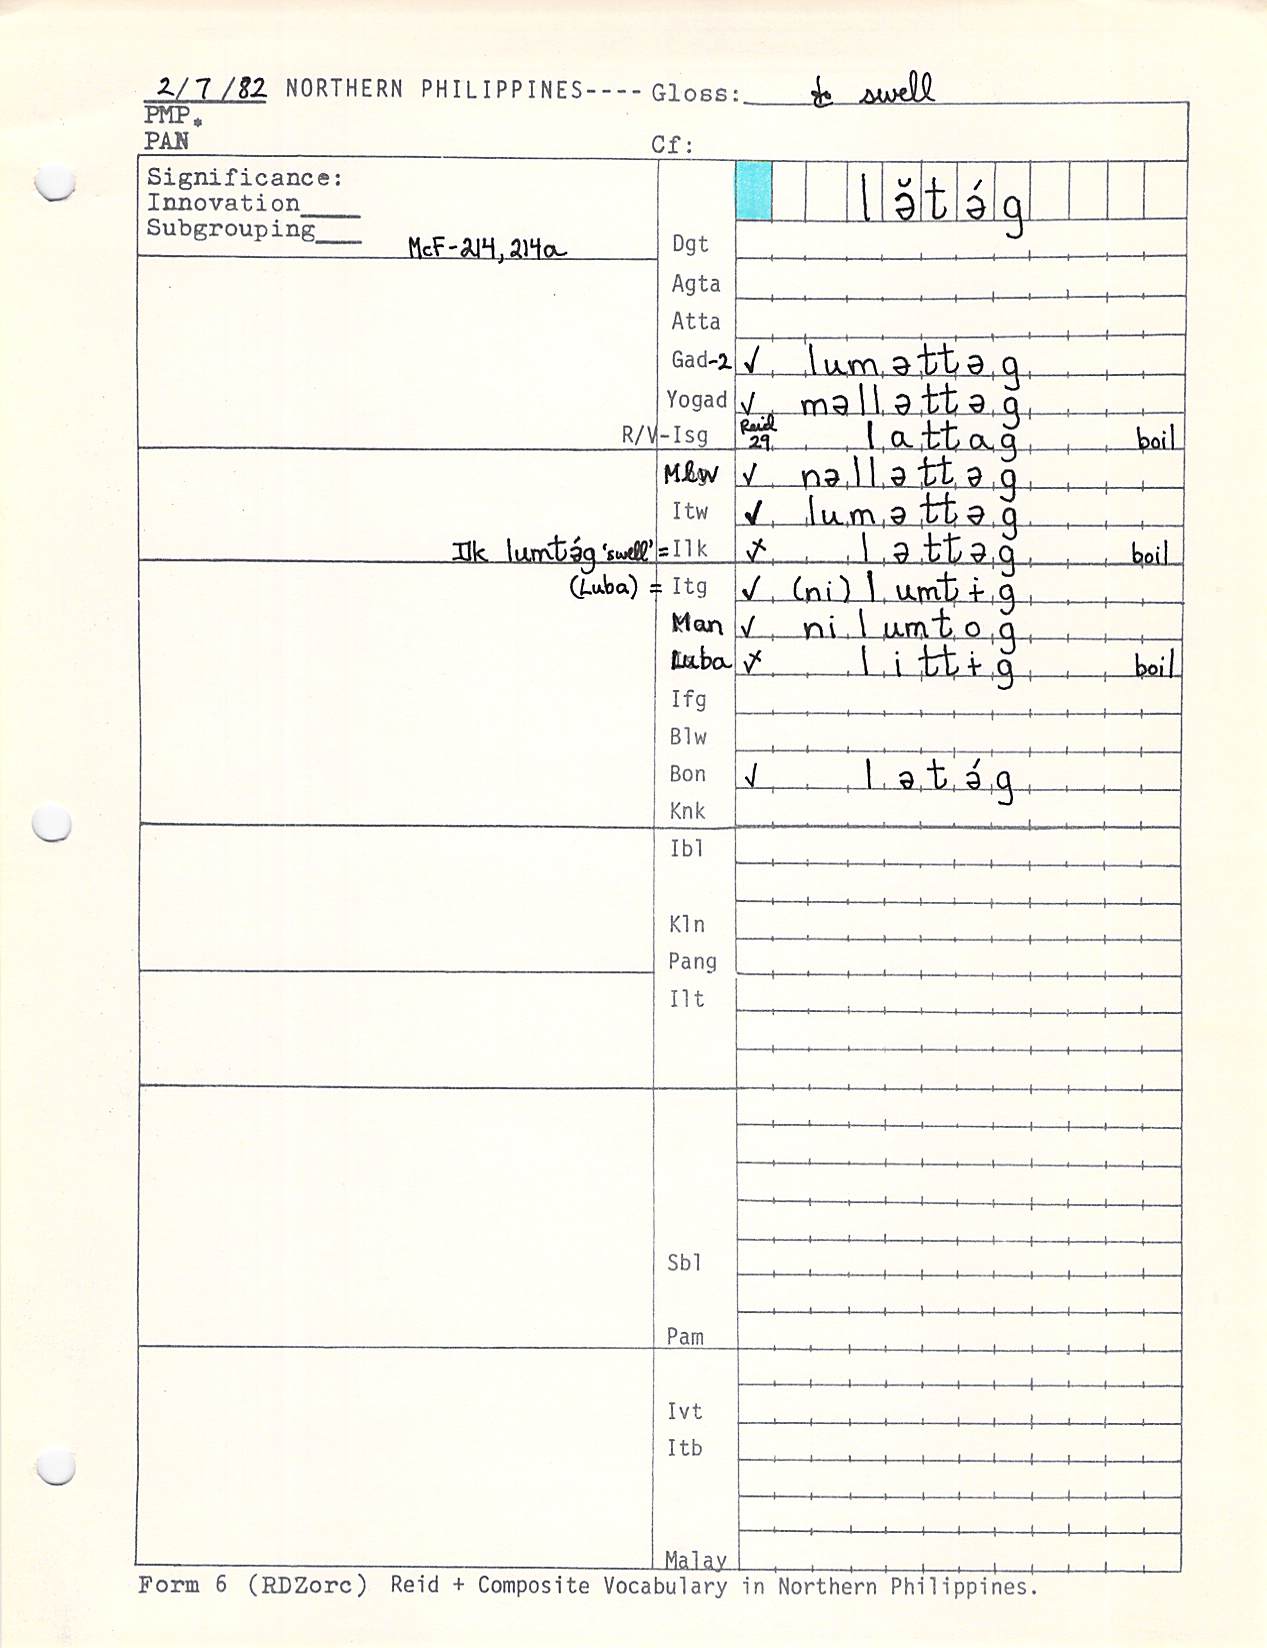 2/7/82 NORTHERN PHILIPPINES---- Gloss: to swell
PMP.
PAN Cf:
Significance:
Innovation____
Subgrouping___
McF-214, 214a
lə̆tə́g
Dgt
Agta
Atta
Gad-2 ✓ lumǝttǝg
Yogad ✓ mǝllǝttǝg
R/V-Isg Reid 29 lattag boil
Mlw ✓ nǝllǝttǝg
Itw ✓ lumǝttǝg
Ilk lumtə́g 'swell' = Ilk × lǝttǝg boil
(Luba) = Itg ✓ (ni) lumtɨg
Man ✓ nilumtog
Luba × littɨg boil
Ifg
Blw
Bon ✓ lǝtə́g
Knk
Ibl
Kln
Pang
Ilt
Sbl
Pam
Ivt
Itb
Malay
Form 6 (RDZorc) Reid + Composite Vocabulary in Northern Philippines.